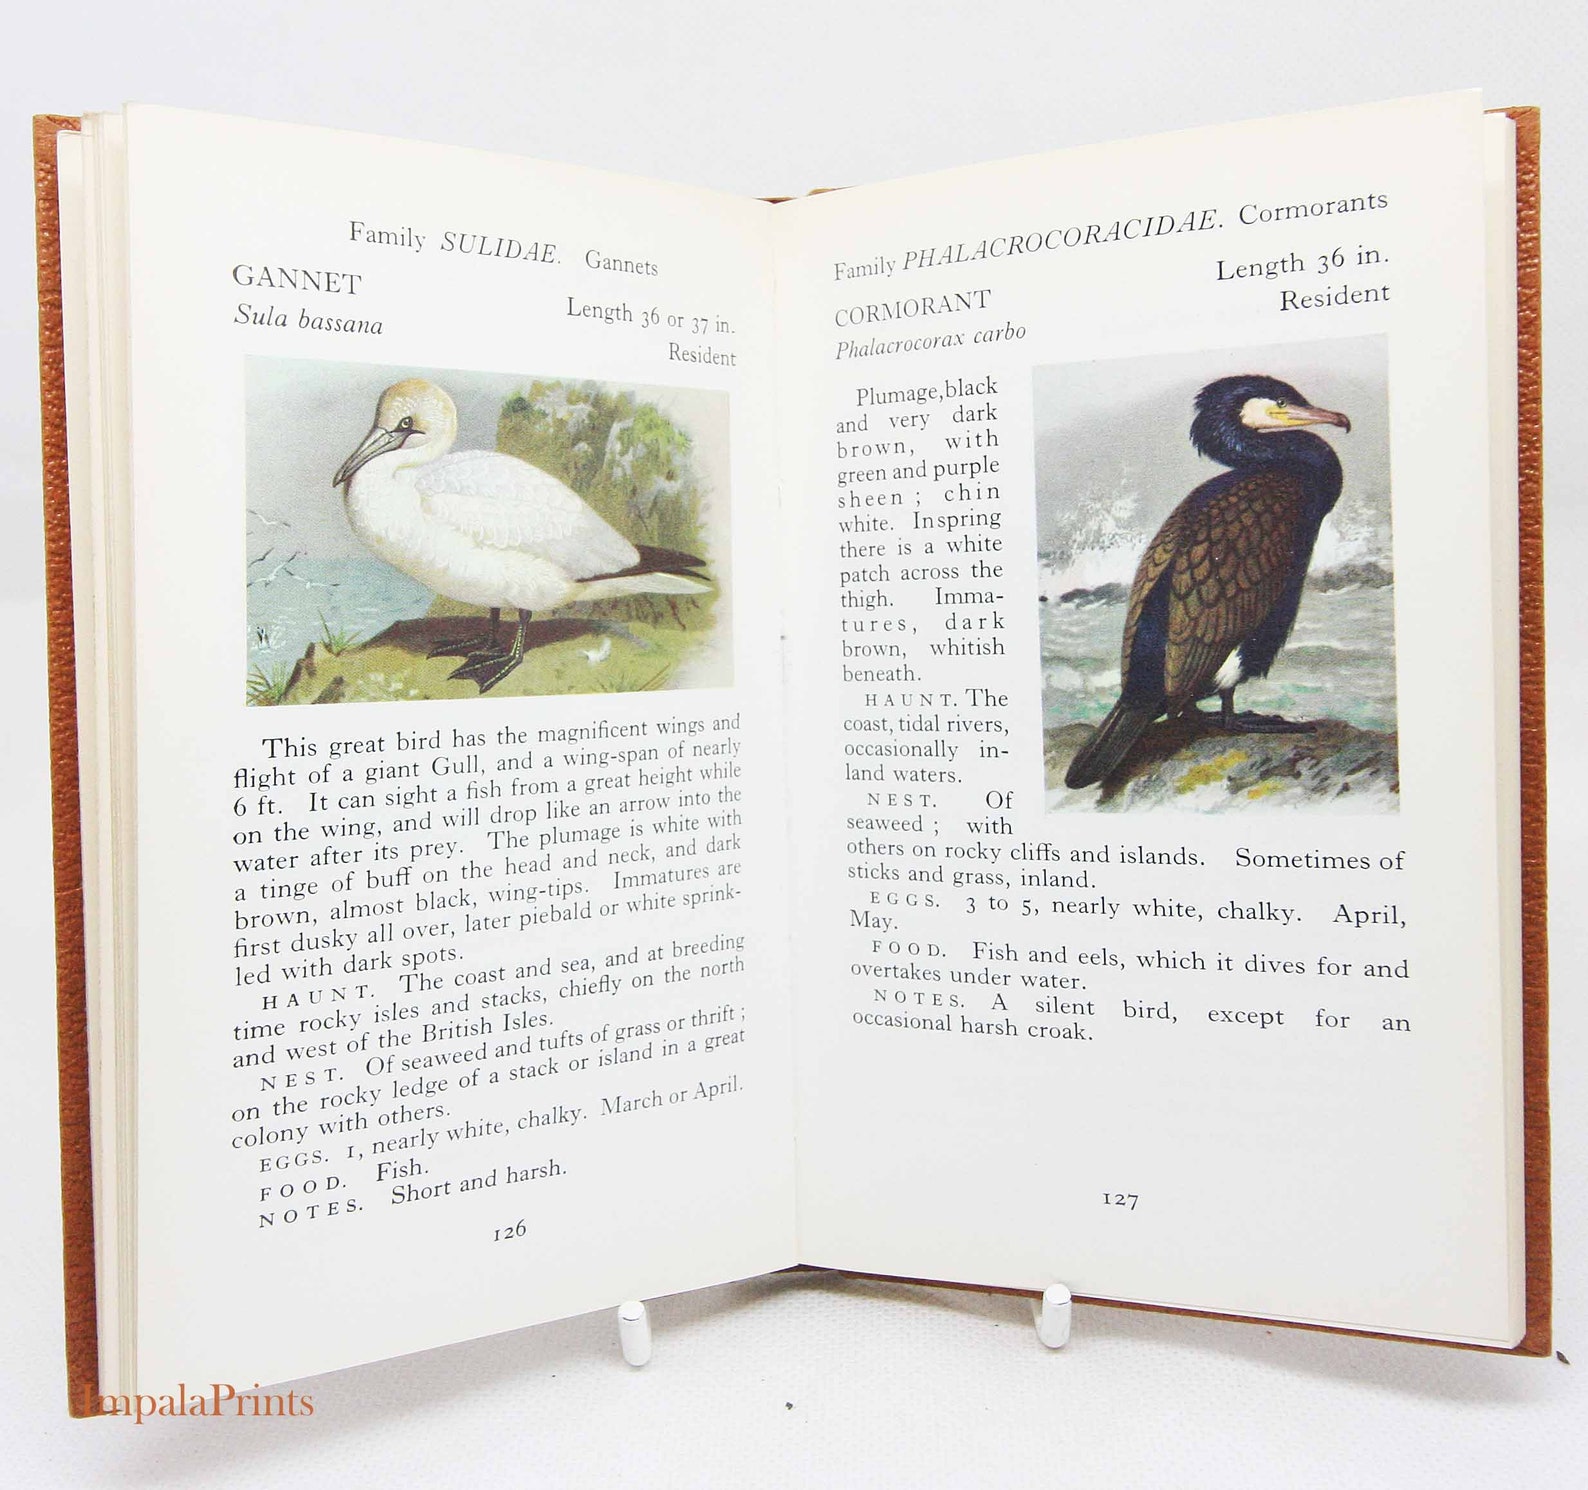 Family SULIDAE. Gannets
GANNET
Length 36 or 37 in.
Sula bassana
Resident
This great bird has the magnificent wings and
flight of a giant Gull, and a wing-span of nearly
6 ft. It can sight a fish from a great height while
on the wing, and will drop like an arrow into the
water after its prey. The plumage is white with
a tinge of buff on the head and neck, and dark
brown, almost black, wing-tips. Immatures are
first dusky all over, later piebald or white sprink-
led with dark spots.
HAUNT. The coast and sea, and at breeding
time rocky isles and stacks, chiefly on the north
and west of the British Isles.
NEST. Of seaweed and tufts of grass or thrift;
on the rocky ledge of a stack or island in a great
colony with others.
EGGS. 1, nearly white, chalky. March or April.
FOOD. Fish.
NOTES. Short and harsh.
126
Family PHALACROCORACIDAE. Cormorants
CORMORANT
Length 36 in.
Phalacrocorax carbo
Resident
Plumage, black
and very dark
brown, with
green and purple
sheen; chin
white. In spring
there is a white
patch across the
thigh. Imma-
tures, dark
brown, whitish
beneath.
HAUNT. The
coast, tidal rivers,
occasionally in-
land waters.
NEST. Of
seaweed; with
others on rocky cliffs and islands. Sometimes of
sticks and grass, inland.
EGGS. 3 to 5, nearly white, chalky. April,
May.
FOOD. Fish and eels, which it dives for and
overtakes under water.
NOTES. A silent bird, except for an
occasional harsh croak.
127
ImpalaPrints